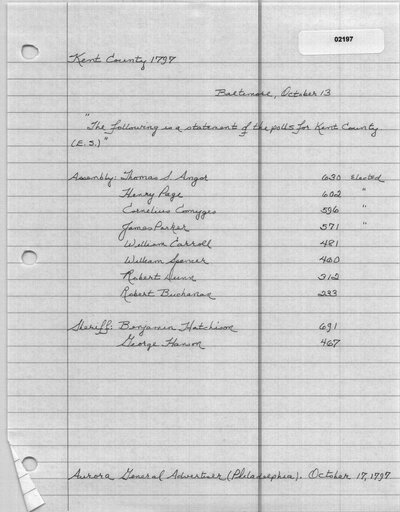 02197
Kent County 1797
Baltimore, October 13
"The following is a statement of the polls for Kent County
(E.S.)"
Assembly: Thomas S. Angor 630 Elected
Henry Page 602 "
Cornelius Comyges 596 "
James Parker 571 "
William Carroll 481
William Spencer 400
Robert Dunn 312
Robert Buchanan 233
Sheriff: Benjamin Hatchison 691
George Hanson 467
Aurora General Advertiser (Philadelphia). October 17, 1797